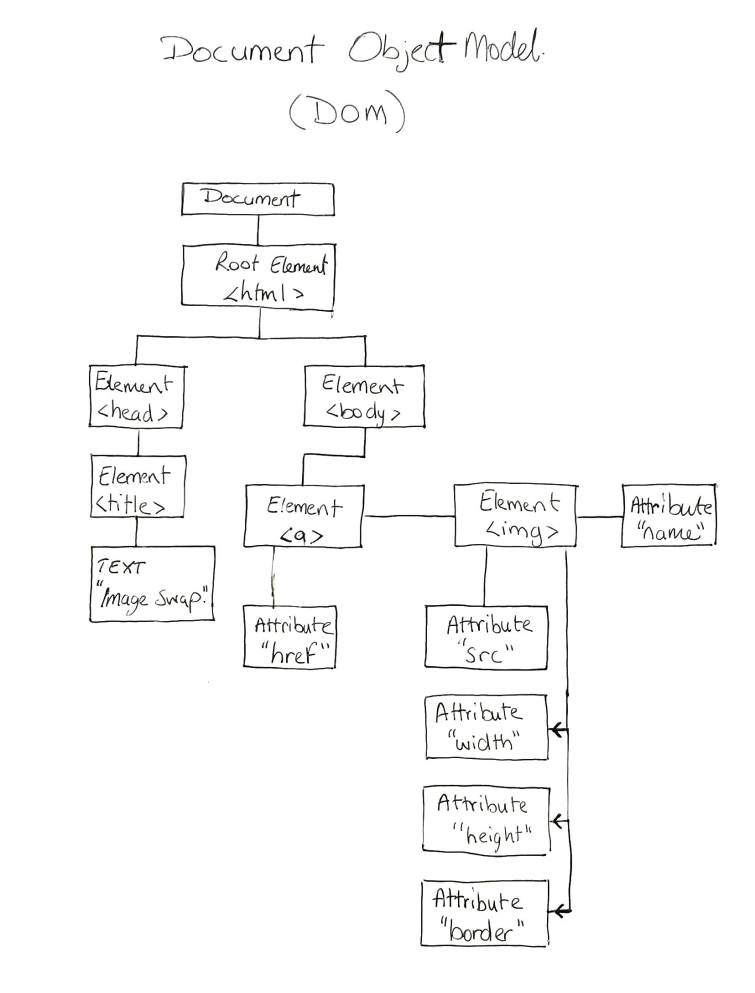 Document Object Model.
(DOM)
Document
Root Element
<html>
Element
<head>
Element
<body>
Element
<title>
Element
<a>
Element
<img>
Attribute
"name"
TEXT
"Image Swap."
Attribute
"href"
Attribute
"src"
Attribute
"width"
Attribute
"height"
Attribute
"border"